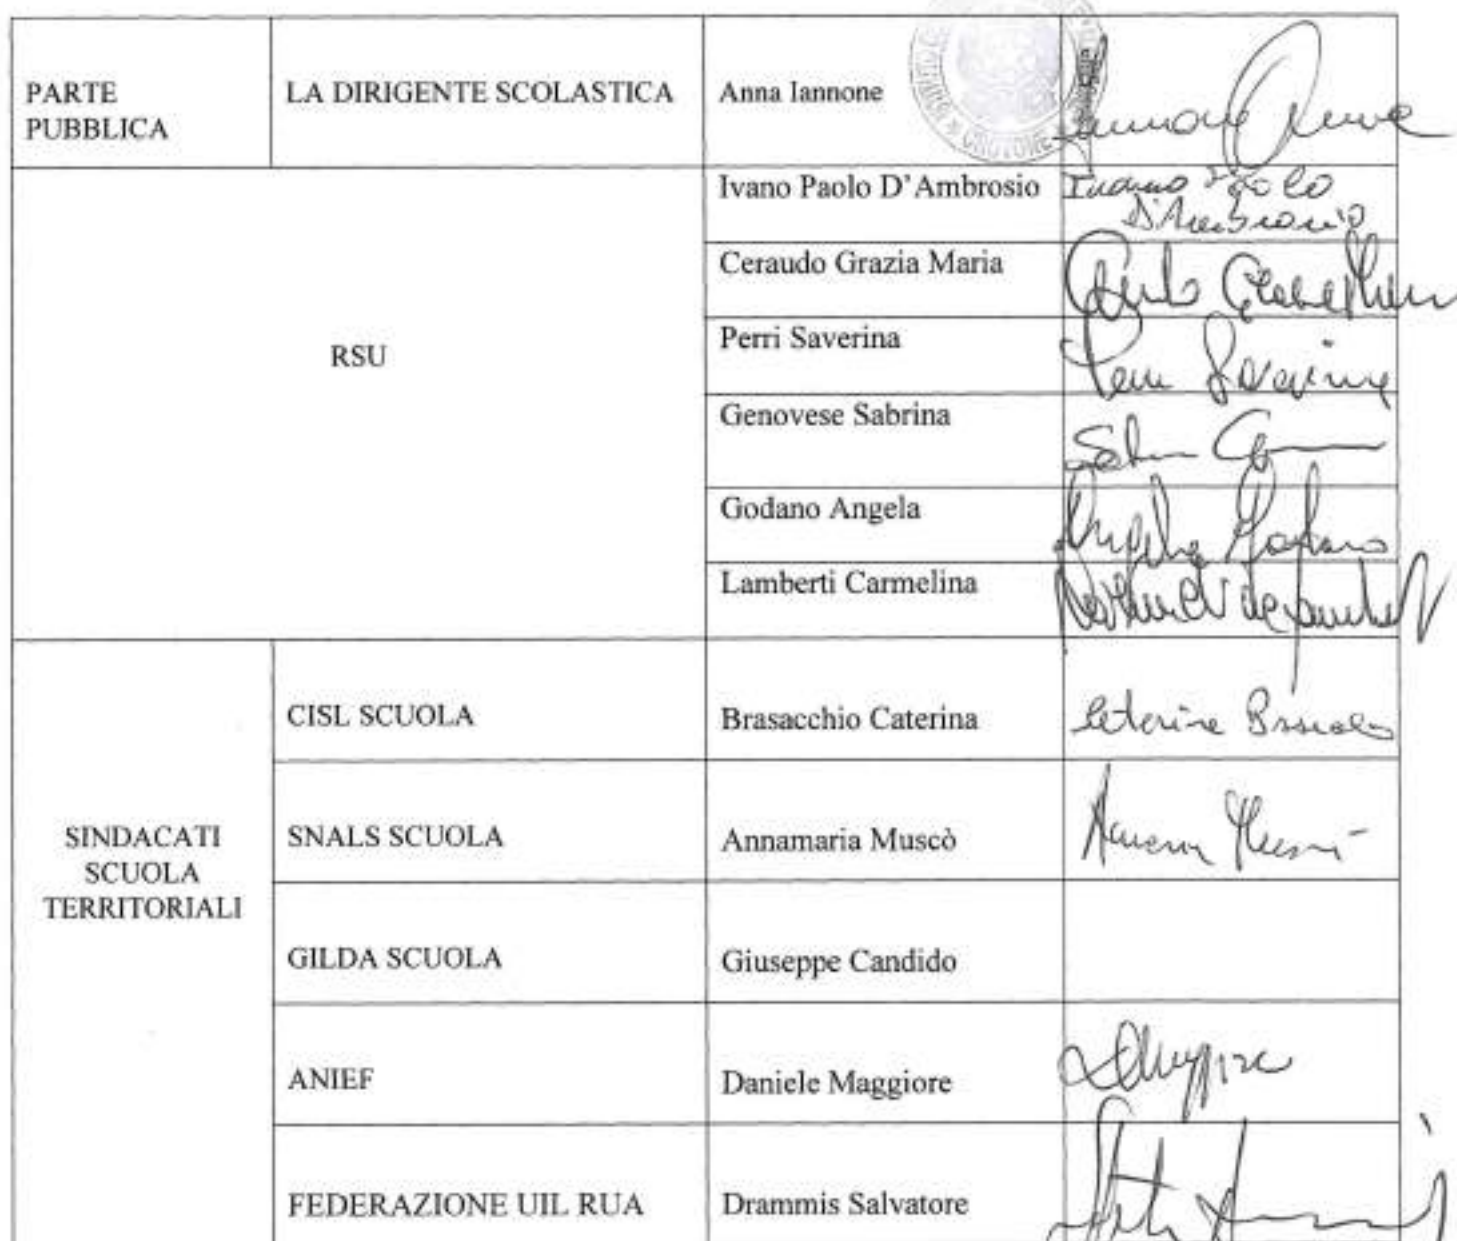 PARTE
PUBBLICA
LA DIRIGENTE SCOLASTICA
Anna Iannone
CROTONE
Iannone Anna
RSU
Ivano Paolo D'Ambrosio
Ivano Paolo
D'Ambrosio
Ceraudo Grazia Maria
Perri Saverina
Perri Saverina
Genovese Sabrina
Godano Angela
Angela Godano
Lamberti Carmelina
SINDACATI
SCUOLA
TERRITORIALI
CISL SCUOLA
Brasacchio Caterina
Caterina
SNALS SCUOLA
Annamaria Muscò
GILDA SCUOLA
Giuseppe Candido
ANIEF
Daniele Maggiore
FEDERAZIONE UIL RUA
Drammis Salvatore